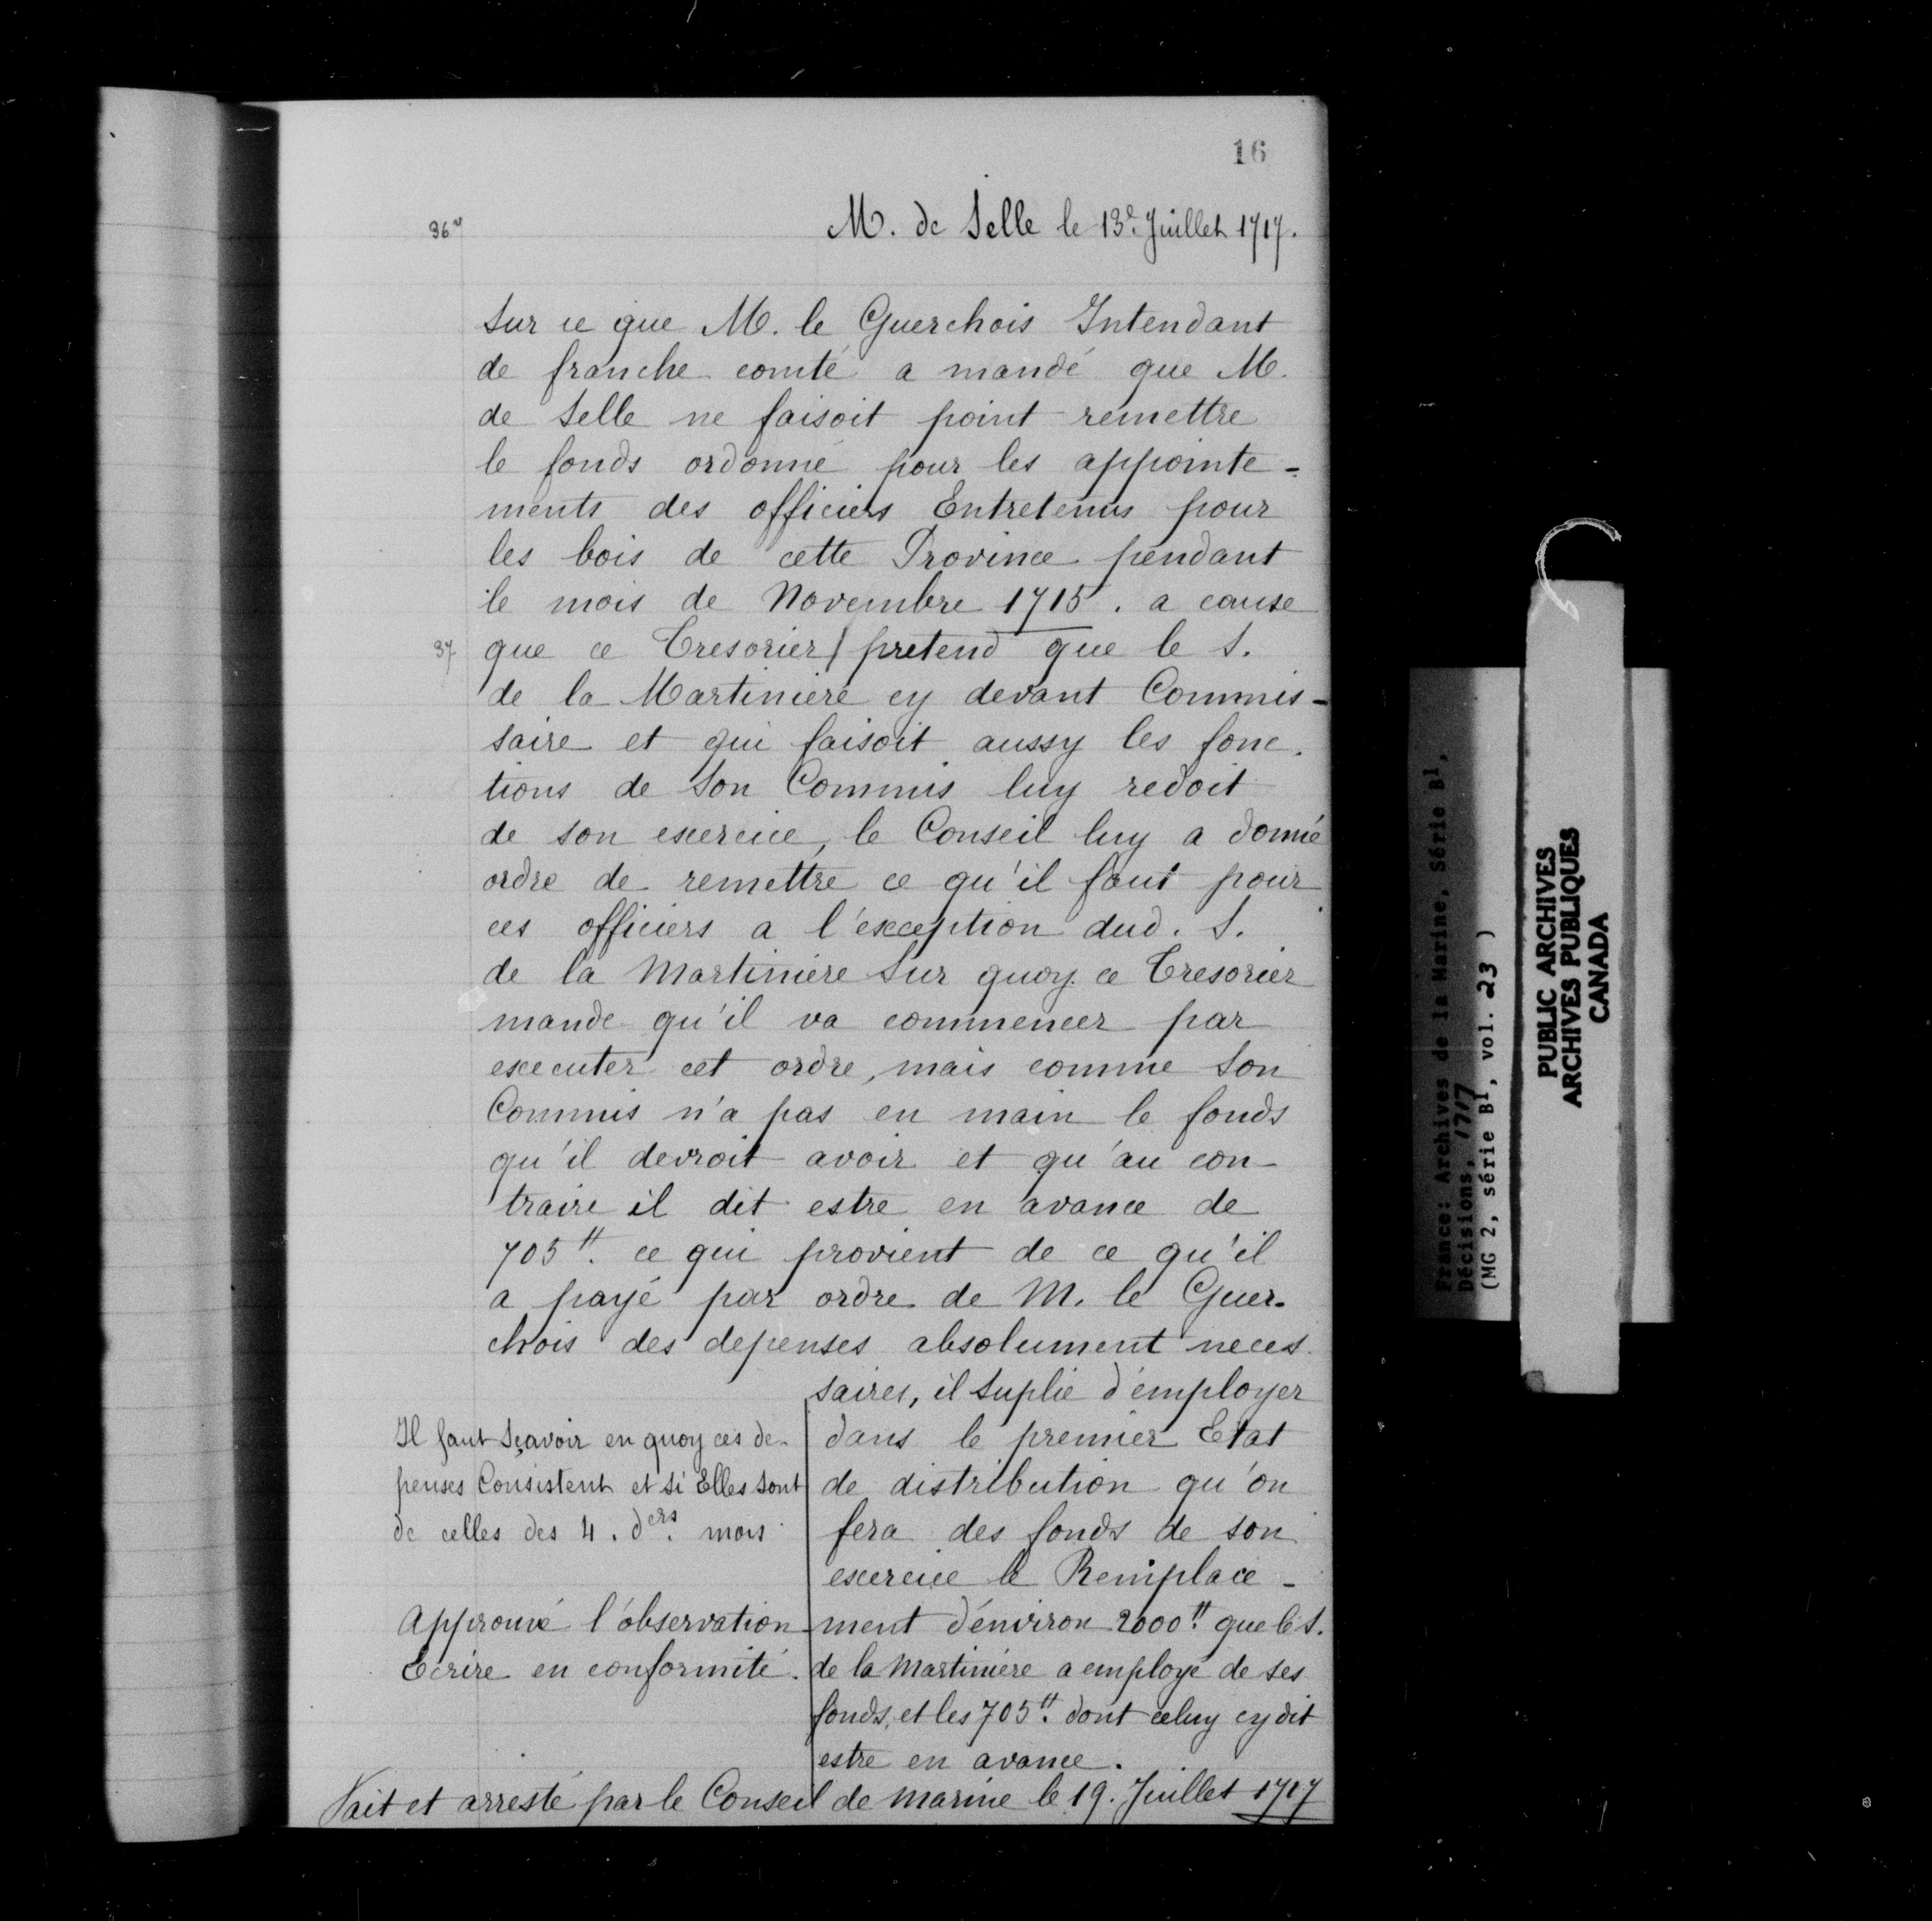 16
36v
M. de Selle le 13e Juillet 1717.
Sur ce que M. le Guerchois Intendant
de franche comté a mandé que M.
de Selle ne faisoit point remettre
le fonds ordonné pour les appointe-
ments des officiers Entretenus pour
les bois de cette Province pendant
le mois de Novembre 1715. a cause
37
que ce Tresorier / pretend que le S.
de la Martiniere cy devant Commis-
saire et qui faisoit aussy les fonc-
tions de Son Commis luy redoit
de son exercice, le Conseil luy a donné
ordre de remettre ce qu'il faut pour
ces officiers a l'exception dud. S.
de la Martiniere Sur quoy ce Tresorier
mande qu'il va commencer par
executer cet ordre, mais comme Son
Commis n'a pas en main le fonds
qu'il devroit avoir et qu'au con-
traire il dit estre en avance de
705tt. ce qui provient de ce qu'il
a payé par ordre de M. le Guer-
chois des depenses absolument neces-
saires, il Suplie d'employer
dans le premier Etat
de distribution qu'on
fera des fonds de son
exercice le Remplace-
ment d'environ 2000tt. que le S.
de la Martiniere a employé de ses
fonds, et les 705tt. dont celuy cy dit
estre en avance.
Il faut Sçavoir en quoy ces de-
penses Consistent et Si Elles sont
de celles des 4. ders. mois
Approuvé l'observation
Ecrire en conformité.
Fait et arresté par le Conseil de marine le 19. Juillet 1717
France: Archives de la Marine, Série B1,
Décisions, 1717
(MG 2, série B1, vol. 23 )
PUBLIC ARCHIVES
ARCHIVES PUBLIQUES
CANADA